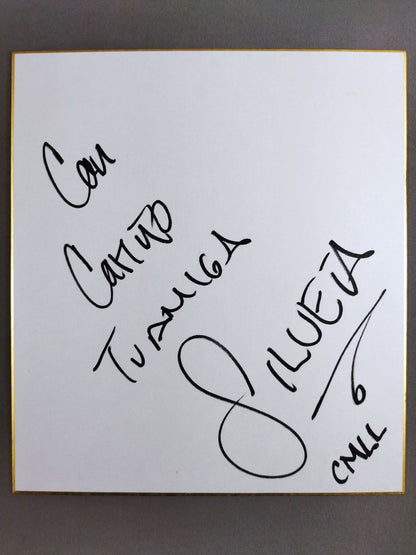 Con
Cariño
Tu AMIGA
SILUETA
CMLL